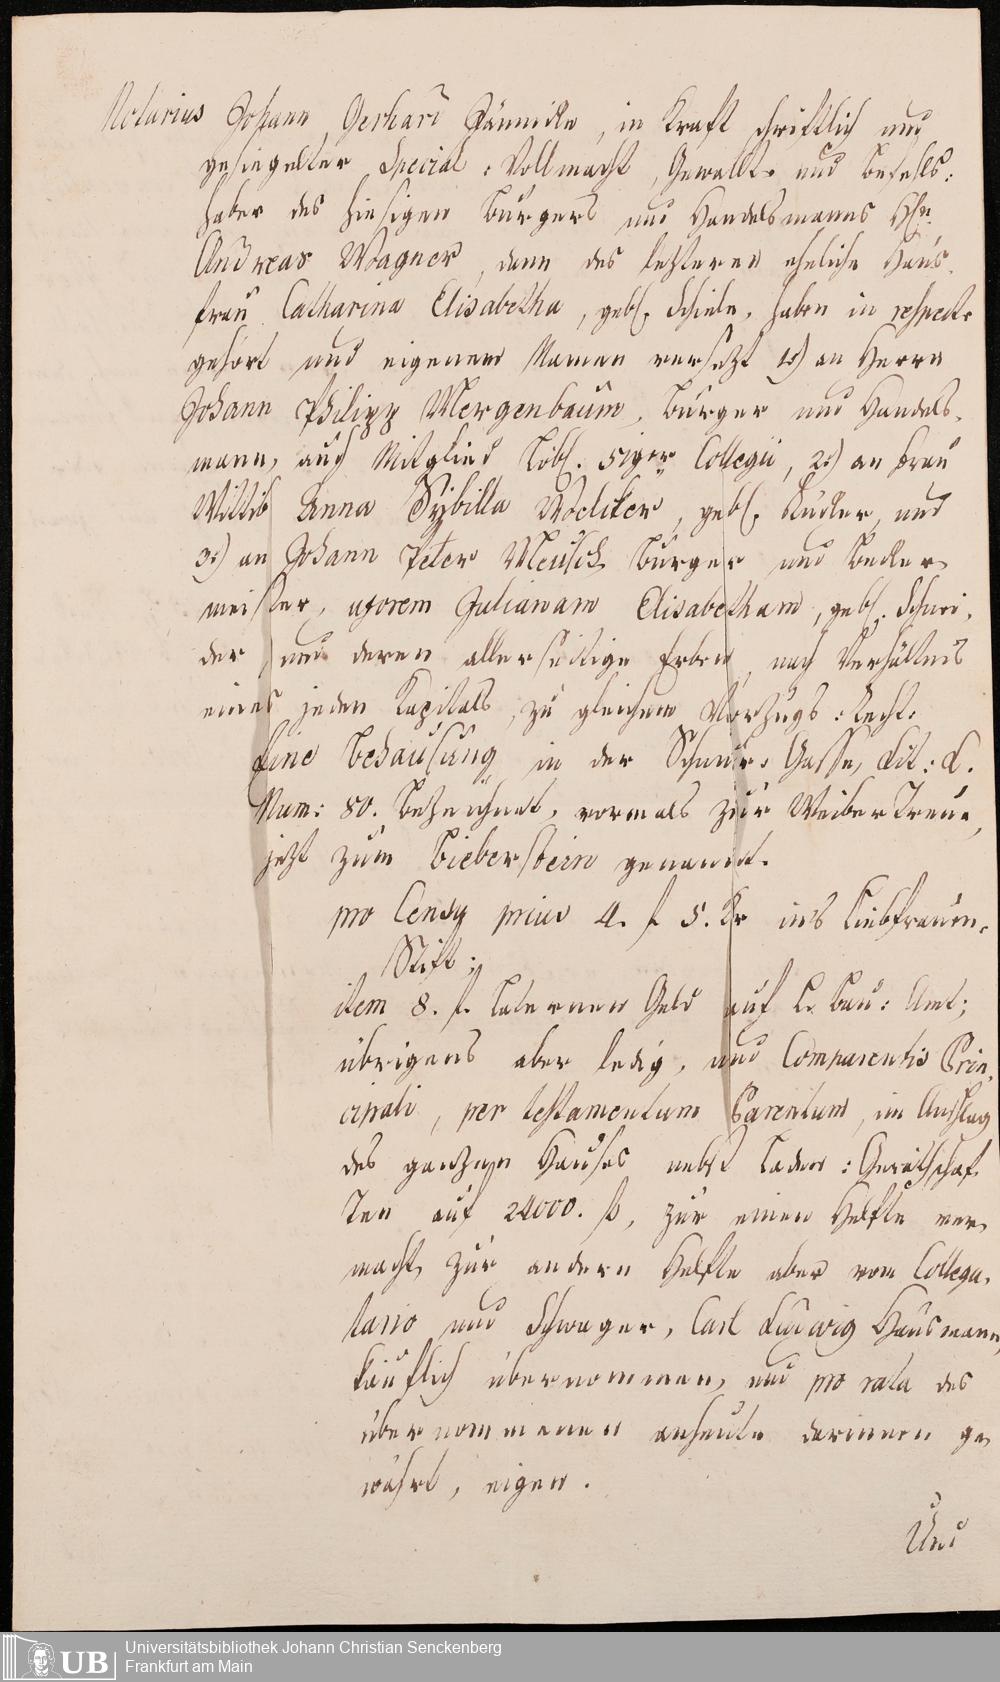 Notarius Johann Gerhard Jännicke, in Kraft schriftlich und
gesiegelter Special-Vollmacht, Gewalt- und Befehls-
haber des hiesigen Burgers und Handelsmanns Hrn.
Andreas Wagner, dann des letzteren eheliche Haus-
frau Catharina Elisabetha, gebl. Schiele, haben in respect.
gehört und eigenem Namen versetzt 1.) an Herrn
Johann Philipp Mergenbaum, Burger und Handels-
mann, auch Mitglied Löbl. 51ger Collegii, 2.) an Frau
Wittib Anna Sybilla Woelcker, gebl. und
3.) an Johann Peter Meusch Burger und Becker-
meister, uxorem Julianam Elisabetham, gebl. Schnei-
der, und deren allerseitige Erben, nach Verhältnis
eines jeden Kapitals, zu gleichem Vorzugs-Recht.
Eine Behausung in der Schnur-Gasse, Lit: L.
Num: 80. bezeichnet, vormals zur Weiber Treue,
jetzt zum Bieberstein genannt.
pro Censu prius 4. f 5. Kr ins Liebfrauen-
Stift;
item 8. f. Laternen Geld auf L. Bau-Amt;
übrigens aber ledig, und Comparentis Prin-
cipali, per testamentum Parentum, im Anschlag
des ganzen Hauses nebst Laden-Geräthschaf-
ten auf 24000. f, zur einen Helfte ver-
macht, zur andern Helfte aber vom Collega-
tario und Schwager, Carl Ludwig Hausmann,
käuflich übernommen, und pro rata des
übernommenen anheute darinnen ge-
währt, eigen.
Und
UB
Universitätsbibliothek Johann Christian Senckenberg
Frankfurt am Main